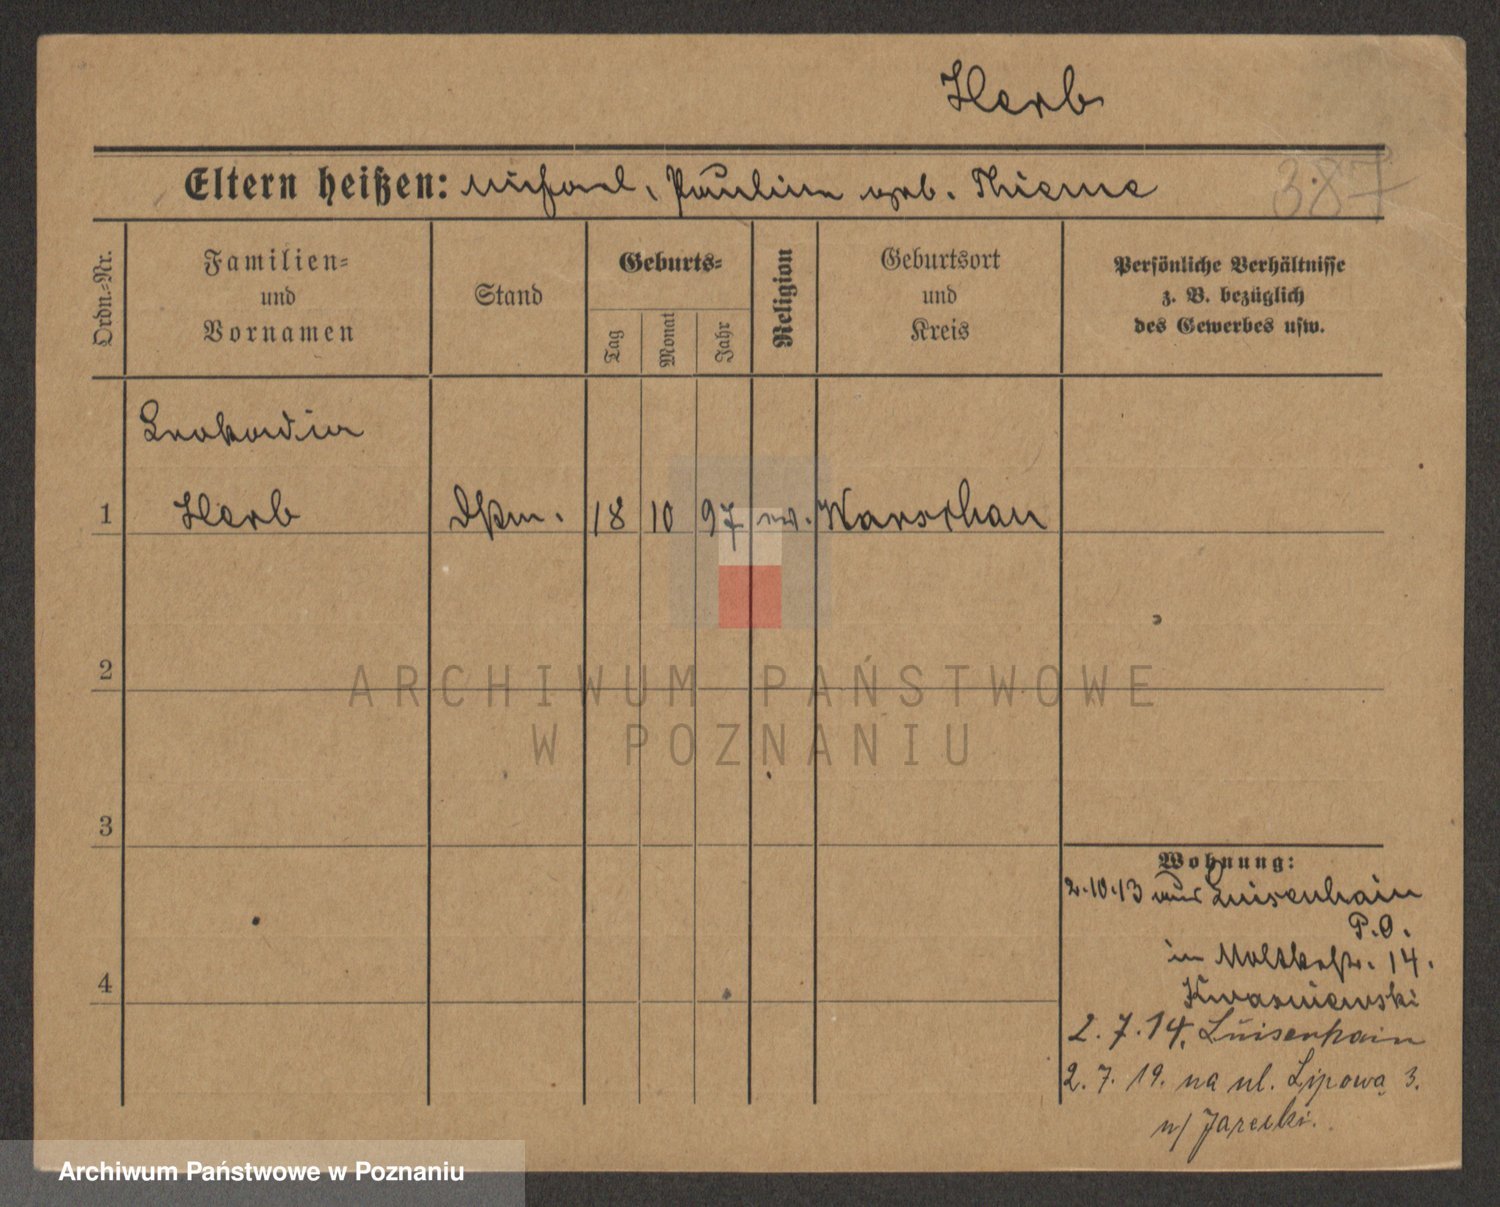 Herb
387
Eltern heißen: Michael, Pauline geb. Thieme
Ordn.-Nr.
Familien-
und
Vornamen
Stand
Geburts-
Tag
Monat
Jahr
Religion
Geburtsort
und
Kreis
Persönliche Verhältnisse
z. B. bezüglich
des Gewerbes usw.
Leokardia
1 Herb 18 10 97 ev. Warschau
2
3
4
Wohnung:
2.10.13 aus Luisenhain
P.O.
in Moltkestr. 14.
Kwasniewski
2.7.14. Luisenhain
2.7.19. na ul. Lipową 3.
u/ Jarecki.
ARCHIWUM PAŃSTWOWE
W POZNANIU
Archiwum Państwowe w Poznaniu